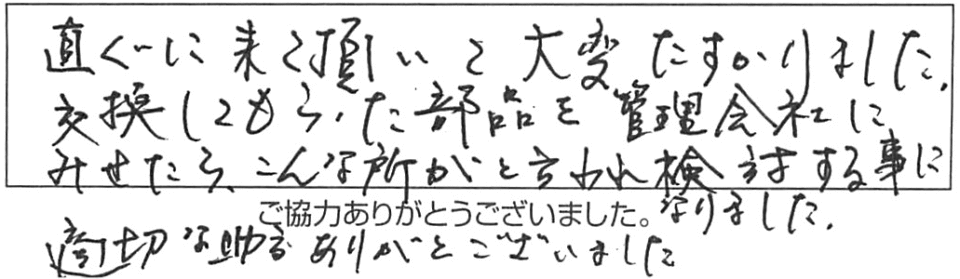 直ぐに来て頂いて大変たすかりました。
交換してもらった部品を管理会社に
みせたら、こんな所がと言われ検討する事に
なりました。
ご協力ありがとうございました。
適切な助言ありがとございました